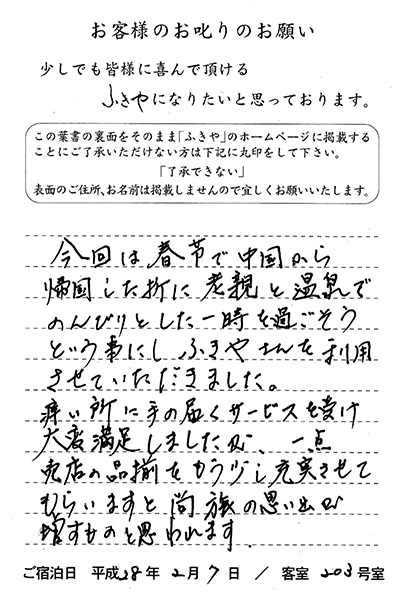 お客様のお叱りのお願い
少しでも皆様に喜んで頂ける
ふきやになりたいと思っております。
この葉書の裏面をそのまま「ふきや」のホームページに掲載する
ことにご了承いただけない方は下記に丸印をして下さい。
「了承できない」
表面のご住所、お名前は掲載しませんので宜しくお願いいたします。
今回は春节で中国から
帰国した折に老親と温泉で
のんびりとした一時を過ごそう
という事にしふきやさんを利用
させていただきました。
痒い所に手の届くサービスを受け
大変満足しましたが、一点
売店の品揃をもう少し充実させて
もらいますと尚旅の思い出が
増すものと思われます
ご宿泊日 平成28年2月7日 / 客室 203号室